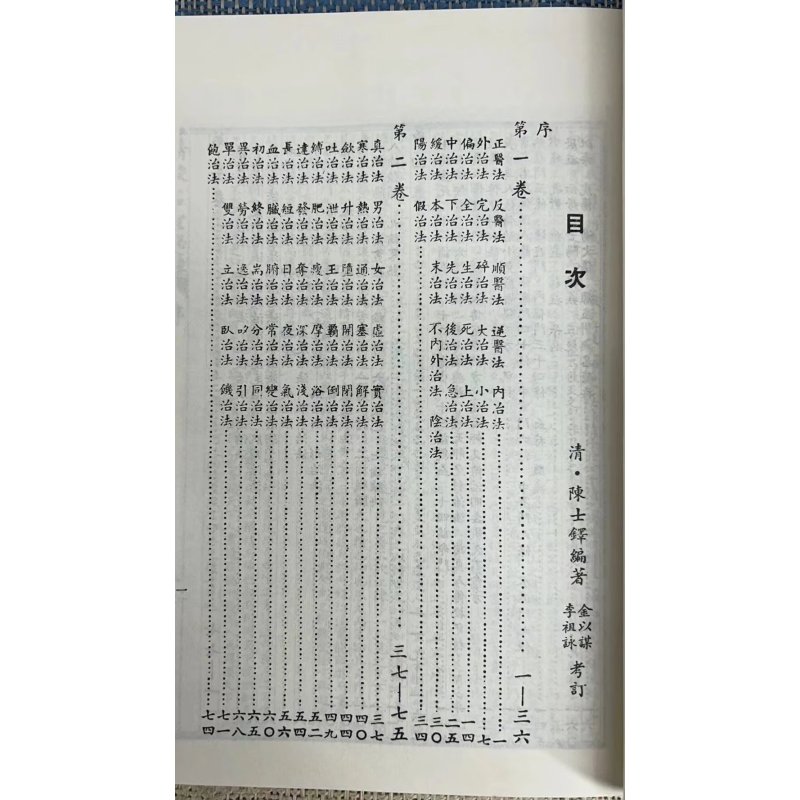 目次
清・陳士鐸編著
金以謀
李祖詠
考訂
序
第一卷……一—三六
正醫法 反醫法 順醫法 逆醫法 內治法……一
外治法 完治法 碎治法 大治法 小治法……七
偏治法 全治法 生治法 死治法 上治法……一四
中治法 下治法 先治法 後治法 急治法……二五
緩治法 本治法 末治法 不內外治法 陰治法……三〇
陽治法 假治法……三四
第二卷……三七—七五
真治法 男治法 女治法 虛治法 實治法……三七
寒治法 熱治法 通治法 塞治法 解治法……四〇
斂治法 升治法 墮治法 開治法 閉治法……四四
吐治法 泄治法 王治法 霸治法 倒治法……四九
縛治法 肥治法 瘦治法 摩治法 浴治法……五二
達治法 發治法 奪治法 深治法 淺治法……五四
長治法 短治法 日治法 夜治法 氣治法……五六
血治法 臟治法 腑治法 常治法 變治法……六〇
初治法 終治法 耑治法 分治法 同治法……六五
異治法 勞治法 逸治法 吸治法 引治法……六八
單治法 雙治法 立治法 臥治法 饑治法……七一
飽治法……七四
一